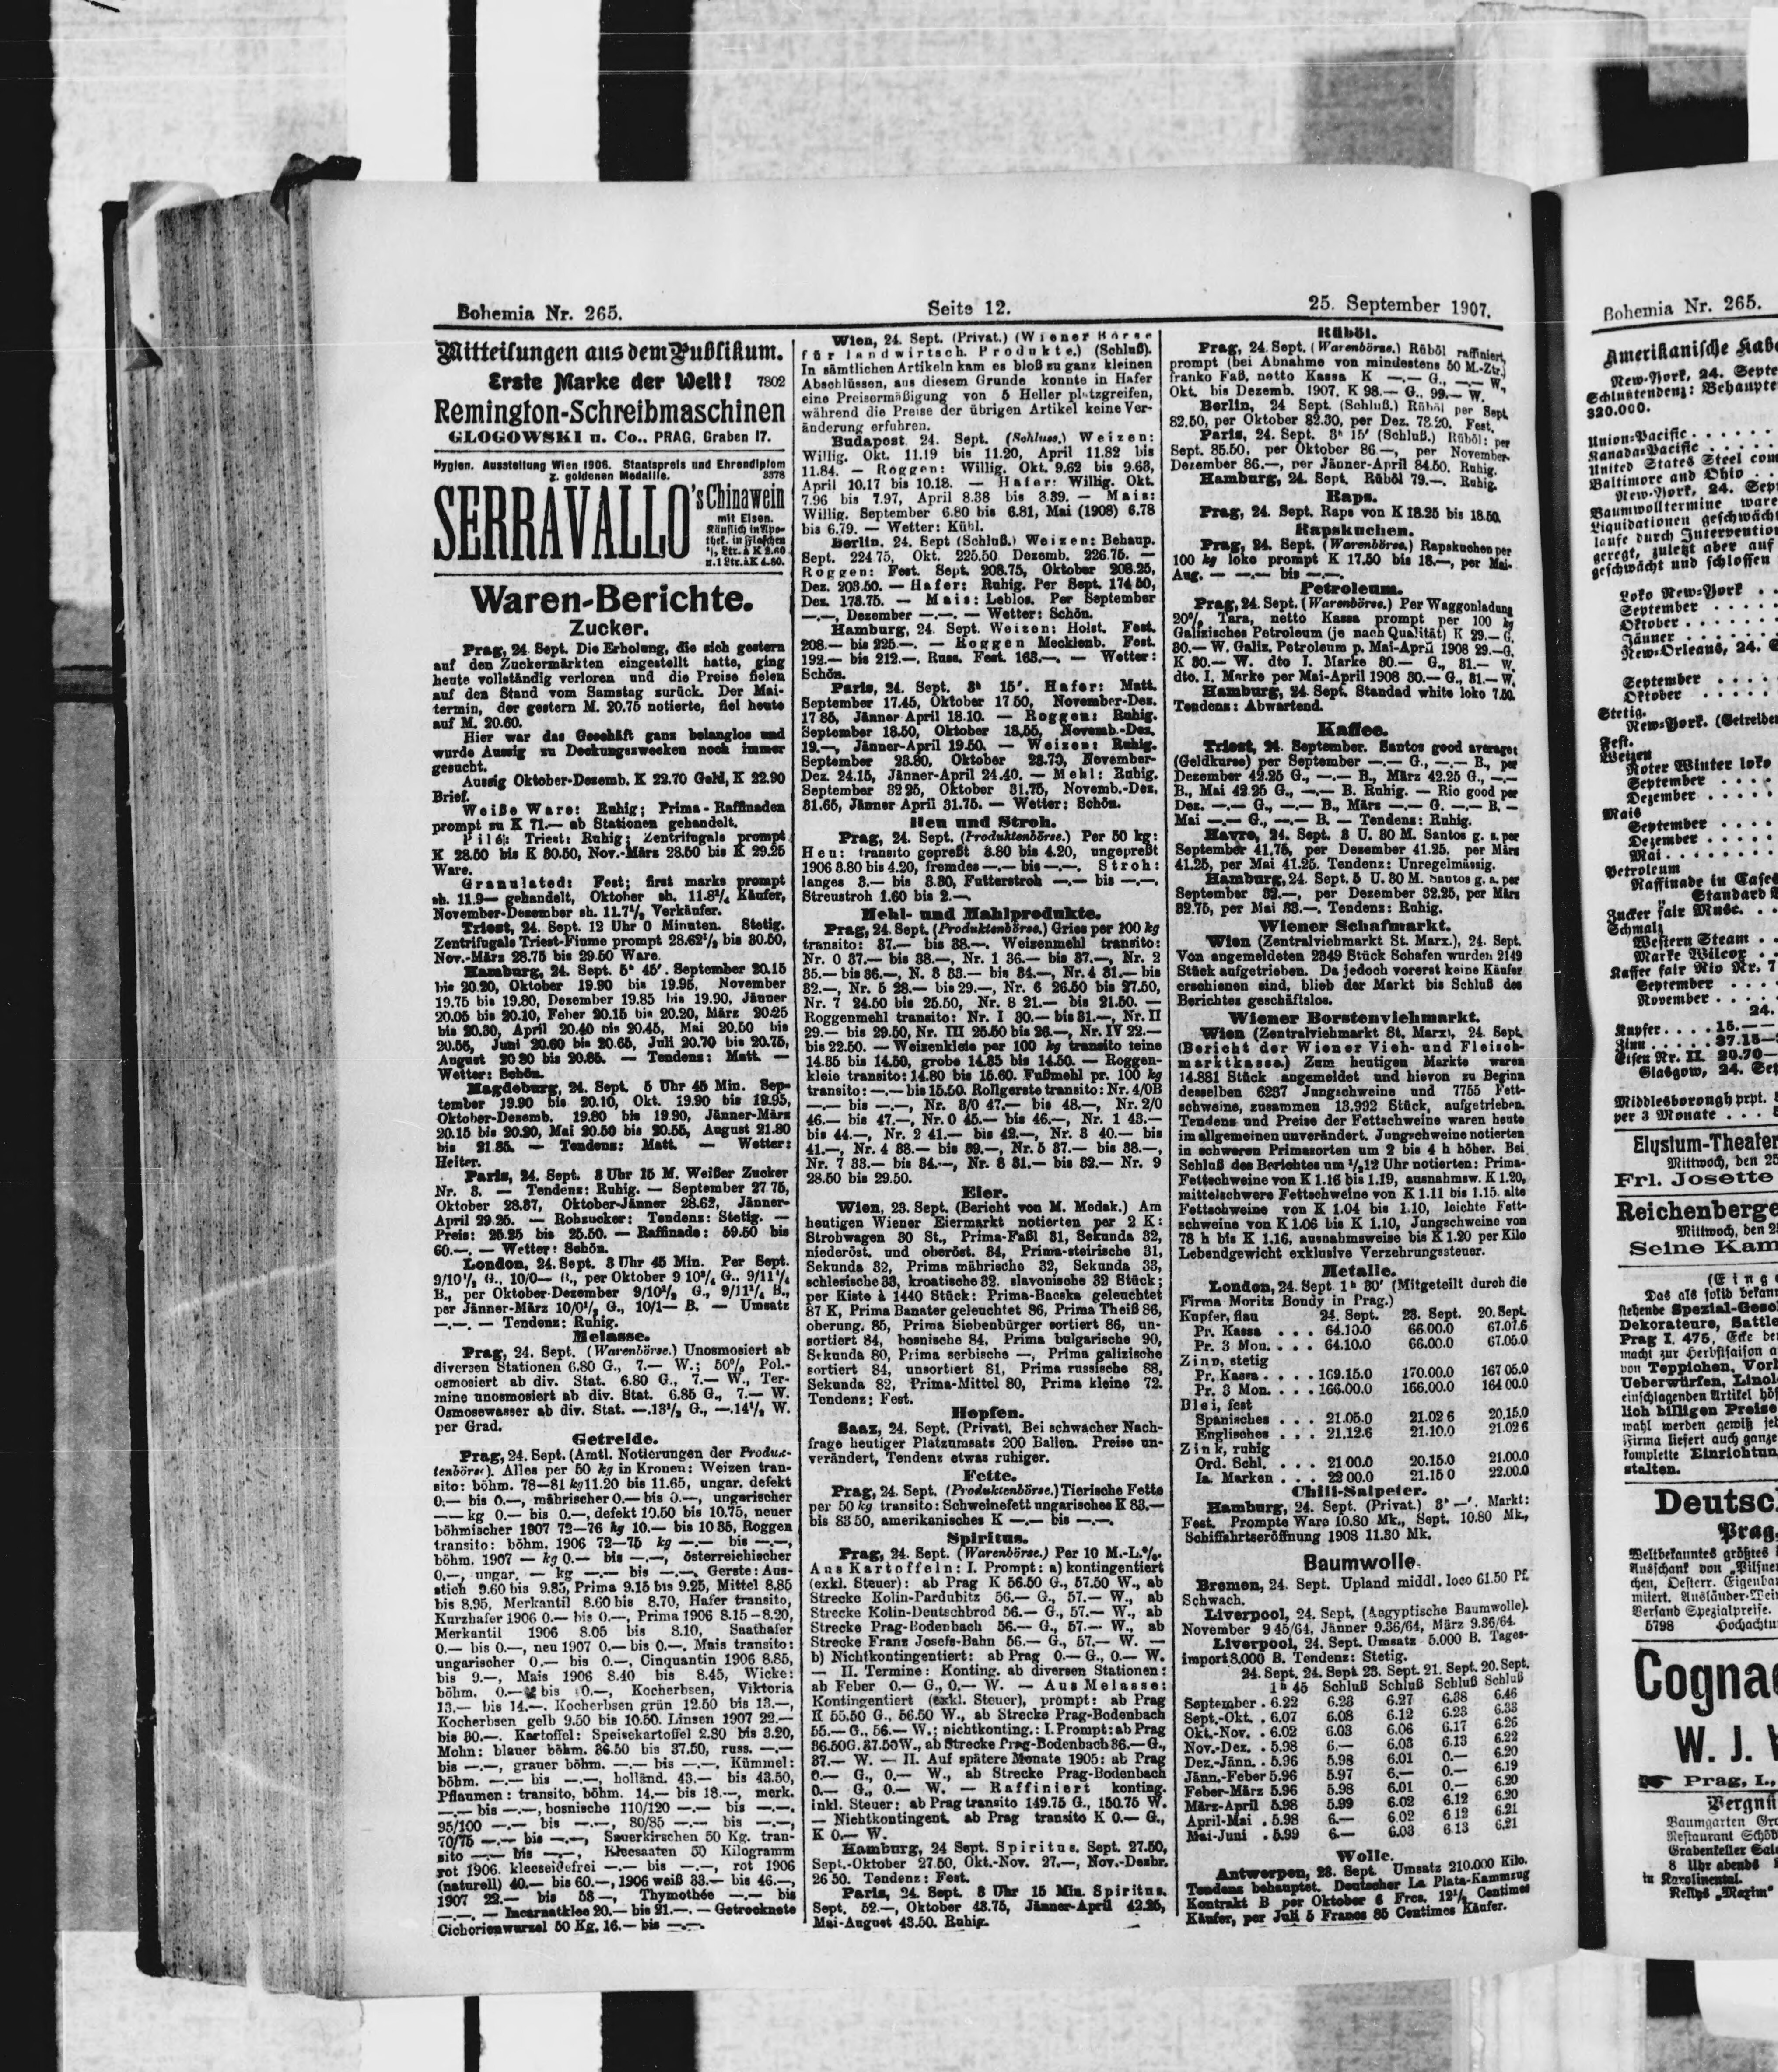 Bohemia Nr. 265.
Seite 12.
25. September 1907.
Mitteilungen aus dem Publikum.
Erste Marke der Welt! 7802
Remington-Schreibmaschinen
GLOGOWSKI u. Co., PRAG, Graben 17.
Hygien. Ausstellung Wien 1906. Staatspreis und Ehrendiplom
z. goldenen Medaille. 3378
SERRAVALLO's Chinawein
mit Eisen.
Käuflich in Apo-
thek. in Flaschen
½ Ltr. à K 2.60
u. 1 Ltr. à K 4.80.
Waren-Berichte.
Zucker.
Prag, 24. Sept. Die Erholung, die sich gestern
auf den Zuckermärkten eingestellt hatte, ging
heute vollständig verloren und die Preise fielen
auf den Stand vom Samstag zurück. Der Mai-
termin, der gestern M. 20.75 notierte, fiel heute
auf M. 20.60.
Hier war das Geschäft ganz belanglos und
wurde Aussig zu Deckungszwecken noch immer
gesucht.
Aussig Oktober-Dezemb. K 22.70 Geld, K 22.90
Brief.
Weiße Ware: Ruhig; Prima-Raffinaden
prompt zu K 71.— ab Stationen gehandelt.
Pilé: Triest: Ruhig; Zentrifugals prompt
K 28.50 bis K 30.50, Nov.-März 28.50 bis K 29.25
Ware.
Granulated: Fest; first marks prompt
sh. 11.9— gehandelt, Oktober sh. 11.8¼ Käufer,
November-Dezember sh. 11.7½ Verkäufer.
Triest, 24. Sept. 12 Uhr 0 Minuten. Stetig.
Zentrifugals Triest-Fiume prompt 28.62½ bis 30.50,
Nov.-März 28.75 bis 29.50 Ware.
Hamburg, 24. Sept. 5h 45'. September 20.15
bis 20.20, Oktober 19.90 bis 19.95, November
19.75 bis 19.80, Dezember 19.85 bis 19.90, Jänner
20.05 bis 20.10, Feber 20.15 bis 20.20, März 20.25
bis 20.30, April 20.40 bis 20.45, Mai 20.50 bis
20.55, Juni 20.60 bis 20.65, Juli 20.70 bis 20.75,
August 20.80 bis 20.85. — Tendenz: Matt. —
Wetter: Schön.
Magdeburg, 24. Sept. 5 Uhr 45 Min. Sep-
tember 19.90 bis 20.10, Okt. 19.90 bis 19.95,
Oktober-Dezemb. 19.80 bis 19.90, Jänner-März
20.15 bis 20.20, Mai 20.50 bis 20.55, August 21.80
bis 21.85. — Tendenz: Matt. — Wetter:
Heiter.
Paris, 24. Sept. 3 Uhr 15 M. Weißer Zucker
Nr. 3. — Tendenz: Ruhig. — September 27.75,
Oktober 28.37, Oktober-Jänner 28.62, Jänner-
April 29.25. — Rohzucker: Tendenz: Stetig. —
Preis: 25.25 bis 25.50. — Raffinade: 59.50 bis
60.—. — Wetter: Schön.
London, 24. Sept. 3 Uhr 45 Min. Per Sept.
9/10½ G., 10/0— B., per Oktober 9 10¾ G., 9/11¼
B., per Oktober-Dezember 9/10¾ G., 9/11¼ B.,
per Jänner-März 10/0½ G., 10/1— B. — Umsatz
—.—. — Tendenz: Ruhig.
Melasse.
Prag, 24. Sept. (Warenbörse.) Unosmosiert ab
diversen Stationen 6.80 G., 7.— W.; 50% Pol.-
osmosiert ab div. Stat. 6.80 G., 7.— W., Ter-
mine unosmosiert ab div. Stat. 6.85 G., 7.— W.
Osmosewasser ab div. Stat. —.13½ G., —.14½ W.
per Grad.
Getreide.
Prag, 24. Sept. (Amtl. Notierungen der Produk-
tenbörse). Alles per 50 kg in Kronen: Weizen tran-
sito: böhm. 78—81 kg 11.20 bis 11.65, ungar. defekt
0.— bis 0.—, mährischer 0.— bis 0.—, ungarischer
—— kg 0.— bis 0.—, defekt 10.50 bis 10.75, neuer
böhmischer 1907 72—76 kg 10.— bis 10 85, Roggen
transito: böhm. 1906 72—75 kg —.— bis —.—,
böhm. 1907 — kg 0.— bis —.—, österreichischer
0.—, ungar. — kg —.— bis —.—. Gerste: Aus-
stich 9.60 bis 9.85, Prima 9.15 bis 9.25, Mittel 8.85
bis 8.95, Merkantil 8.60 bis 8.70, Hafer transito,
Kurzhafer 1906 0.— bis 0.—, Prima 1906 8.15—8.20,
Merkantil 1906 8.05 bis 8.10, Saathafer
0.— bis 0.—, neu 1907 0.— bis 0.—. Mais transito:
ungarischer 0.— bis 0.—, Cinquantin 1906 8.85,
bis 9.—, Mais 1906 8.40 bis 8.45, Wicke:
böhm. 0.— bis 0.—, Kocherbsen, Viktoria
13.— bis 14.—. Kocherbsen grün 12.50 bis 13.—,
Kocherbsen gelb 9.50 bis 10.50. Linsen 1907 22.—
bis 30.—. Kartoffel: Speisekartoffel 2.80 bis 3.20,
Mohn: blauer böhm. 36.50 bis 37.50, russ. —.—
bis —.—, grauer böhm. —.— bis —.—. Kümmel:
böhm. —.— bis —.—, holländ. 43.— bis 43.50,
Pflaumen: transito, böhm. 14.— bis 18.—, merk.
—.— bis —.—, bosnische 110/120 —.— bis —.—.
95/100 —.— bis —.—, 80/85 —.— bis —.—,
70/75 —.— bis —.—, Sauerkirschen 50 Kg. tran-
sito —.— bis —.—, Kleesaaten 50 Kilogramm
rot 1906. kleeseidefrei —.— bis —.—, rot 1906
(naturell) 40.— bis 60.—, 1906 weiß 33.— bis 46.—,
1907 22.— bis 58—, Thymothée —.— bis
—.—. — Incarnatklee 20.— bis 21.—. — Getrocknete
Cichorienwurzel 50 Kg. 16.— bis —.—.
Wien, 24. Sept. (Privat.) (Wiener Börse
für landwirtsch. Produkte.) (Schluß).
In sämtlichen Artikeln kam es bloß zu ganz kleinen
Abschlüssen, aus diesem Grunde konnte in Hafer
eine Preisermäßigung von 5 Heller platzgreifen,
während die Preise der übrigen Artikel keine Ver-
änderung erfuhren.
Budapest, 24. Sept. (Schluss.) Weizen:
Willig. Okt. 11.19 bis 11.20, April 11.82 bis
11.84. — Roggen: Willig. Okt. 9.62 bis 9.63,
April 10.17 bis 10.18. — Hafer: Willig. Okt.
7.96 bis 7.97, April 8.38 bis 8.39. — Mais:
Willig. September 6.80 bis 6.81, Mai (1908) 6.78
bis 6.79. — Wetter: Kühl.
Berlin, 24. Sept (Schluß.) Weizen: Behaup.
Sept. 224 75, Okt. 225.50 Dezemb. 226.75. —
Roggen: Fest. Sept. 208.75, Oktober 208.25,
Dez. 203.50. — Hafer: Ruhig. Per Sept. 174 50,
Dez. 173.75. — Mais: Leblos. Per September
—.—, Dezember —.—. — Wetter: Schön.
Hamburg, 24. Sept. Weizen: Holst. Fest.
208.— bis 225.—. — Roggen Mecklenb. Fest.
192.— bis 212.—. Russ. Fest. 163.—. — Wetter:
Schön.
Paris, 24. Sept. 3h 15'. Hafer: Matt.
September 17.45, Oktober 17 50, November-Dez.
17 85, Jänner April 18.10. — Roggen: Ruhig.
September 18.50, Oktober 18.55, Novemb.-Dez.
19.—, Jänner-April 19.50. — Weizen: Ruhig.
September 23.80, Oktober 23.70, November-
Dez. 24.15, Jänner-April 24.40. — Mehl: Ruhig.
September 32 25, Oktober 31.75, Novemb.-Dez.
31.65, Jänner April 31.75. — Wetter: Schön.
Heu und Stroh.
Prag, 24. Sept. (Produktenbörse.) Per 50 kg:
Heu: transito gepreßt 3.80 bis 4.20, ungepreßt
1906 3.80 bis 4.20, fremdes —.— bis —.—. Stroh:
langes 3.— bis 3.30, Futterstroh —.— bis —.—.
Streustroh 1.60 bis 2.—.
Mehl- und Mahlprodukte.
Prag, 24. Sept. (Produktenbörse.) Gries per 100 kg
transito: 37.— bis 38.—. Weizenmehl transito:
Nr. 0 37.— bis 38.—, Nr. 1 36.— bis 37.—, Nr. 2
35.— bis 36.—, N. 3 33.— bis 34.—, Nr. 4 31.— bis
32.—, Nr. 5 28.— bis 29.—, Nr. 6 26.50 bis 27.50,
Nr. 7 24.50 bis 25.50, Nr. 8 21.— bis 21.50. —
Roggenmehl transito: Nr. I 30.— bis 31.—, Nr. II
29.— bis 29.50, Nr. III 25.50 bis 26.—, Nr. IV 22.—
bis 22.50. — Weizenkleie per 100 kg transito feine
14.35 bis 14.50, grobe 14.35 bis 14.50. — Roggen-
kleie transito: 14.80 bis 15.60. Fußmehl pr. 100 kg
transito: —.— bis 15.50. Rollgerste transito: Nr. 4/0B
—.— bis —.—, Nr. 3/0 47.— bis 48.—, Nr. 2/0
46.— bis 47.—, Nr. 0 45.— bis 46.—, Nr. 1 43.—
bis 44.—, Nr. 2 41.— bis 42.—, Nr. 3 40.— bis
41.—, Nr. 4 38.— bis 39.—, Nr. 5 37.— bis 38.—,
Nr. 7 33.— bis 34.—, Nr. 8 31.— bis 32.— Nr. 9
28.50 bis 29.50.
Eier.
Wien, 23. Sept. (Bericht von M. Medak.) Am
heutigen Wiener Eiermarkt notierten per 2 K:
Strohwagen 30 St., Prima-Faßl 31, Sekunda 32,
niederöst. und oberöst. 34, Prima-steirische 31,
Sekunda 32, Prima mährische 32, Sekunda 33,
schlesische 33, kroatische 32. slavonische 32 Stück;
per Kiste à 1440 Stück: Prima-Bacska geleuchtet
87 K, Prima Banater geleuchtet 86, Prima Theiß 86,
oberung. 85, Prima Siebenbürger sortiert 86, un-
sortiert 84, bosnische 84, Prima bulgarische 90,
Sekunda 80, Prima serbische —, Prima galizische
sortiert 84, unsortiert 81, Prima russische 88,
Sekunda 82, Prima-Mittel 80, Prima kleine 72.
Tendenz: Fest.
Hopfen.
Saaz, 24. Sept. (Privat). Bei schwacher Nach-
frage heutiger Platzumsatz 200 Ballen. Preise un-
verändert, Tendenz etwas ruhiger.
Fette.
Prag, 24. Sept. (Produktenbörse.) Tierische Fette
per 50 kg transito: Schweinefett ungarisches K 83.—
bis 83 50, amerikanisches K —.— bis —.—.
Spiritus.
Prag, 24. Sept. (Warenbörse.) Per 10 M.-L.%.
Aus Kartoffeln: I. Prompt: a) kontingentiert
(exkl. Steuer): ab Prag K 56.50 G., 57.50 W., ab
Strecke Kolin-Pardubitz 56.— G., 57.— W., ab
Strecke Kolin-Deutschbrod 56.— G., 57.— W., ab
Strecke Prag-Bodenbach 56.— G., 57.— W., ab
Strecke Franz Josefs-Bahn 56.— G., 57.— W. —
b) Nichtkontingentiert: ab Prag 0.— G., 0.— W.
— II. Termine: Konting. ab diversen Stationen:
ab Feber 0.— G., 0.— W. — Aus Melasse:
Kontingentiert (exkl. Steuer), prompt: ab Prag
K 55.50 G., 56.50 W., ab Strecke Prag-Bodenbach
55.— G., 56.— W.; nichtkonting.: I. Prompt: ab Prag
36.50G. 37.50W., ab Strecke Prag-Bodenbach 36.— G.,
37.— W. — II. Auf spätere Monate 1905: ab Prag
0.— G., 0.— W., ab Strecke Prag-Bodenbach
0.— G., 0.— W. — Raffiniert konting.
inkl. Steuer: ab Prag transito 149.75 G., 150.75 W.
— Nichtkontingent. ab Prag transito K 0.— G.,
K 0.— W.
Hamburg, 24 Sept. Spiritus. Sept. 27.50,
Sept.-Oktober 27.50, Okt.-Nov. 27.—, Nov.-Dezbr.
26 50. Tendenz: Fest.
Paris, 24. Sept. 3 Uhr 15 Min. Spiritus.
Sept. 52.—, Oktober 43.75, Jänner-April 42.25,
Mai-August 43.50. Ruhig.
Rüböl.
Prag, 24. Sept. (Warenbörse.) Rüböl raffiniert,
prompt (bei Abnahme von mindestens 50 M.-Ztr.)
franko Faß, netto Kassa K —.— G., —.— W.,
Okt. bis Dezemb. 1907. K 98.— G., 99.— W.
Berlin, 24 Sept. (Schluß.) Rüböl per Sept.
82.50, per Oktober 82.30, per Dez. 78.20. Fest.
Paris, 24. Sept. 3h 15' (Schluß.) Rüböl: per
Sept. 85.50, per Oktober 86.—, per November-
Dezember 86.—, per Jänner-April 84.50. Ruhig.
Hamburg, 24. Sept. Rüböl 79.—. Ruhig.
Raps.
Prag, 24. Sept. Raps von K 18.25 bis 18.50.
Rapskuchen.
Prag, 24. Sept. (Warenbörse.) Rapskuchen per
100 kg loko prompt K 17.50 bis 18.—, per Mai-
Aug. — —.— bis —.—.
Petroleum.
Prag, 24. Sept. (Warenbörse.) Per Waggonladung
20% Tara, netto Kassa prompt per 100 kg
Galizisches Petroleum (je nach Qualität) K 29.— G.
30.— W. Galiz. Petroleum p. Mai-April 1908 29.—G.
K 30.— W. dto I. Marke 30.— G., 31.— W.
dto. I. Marke per Mai-April 1908 30.— G., 31.— W.
Hamburg, 24. Sept. Standad white loko 7.50.
Tendenz: Abwartend.
Kaffee.
Triest, 24. September. Santos good averages
(Geldkurse) per September —.— G., —.— B., per
Dezember 42.25 G., —.— B., März 42.25 G., —.—
B., Mai 42.25 G., —.— B. Ruhig. — Rio good per
Dez. —.— G., —.— B., März —.— G. —.— B. —
Mai —.— G., —.— B. — Tendenz: Ruhig.
Havre, 24. Sept. 3 U. 30 M. Santos g. a. per
September 41.75, per Dezember 41.25. per März
41.25, per Mai 41.25. Tendenz: Unregelmässig.
Hamburg, 24. Sept. 5 U. 30 M. Santos g. a. per
September 32.—, per Dezember 32.25, per März
32.75, per Mai 33.—. Tendenz: Ruhig.
Wiener Schafmarkt.
Wien (Zentralviehmarkt St. Marz.), 24. Sept.
Von angemeldeten 2849 Stück Schafen wurden 2149
Stück aufgetrieben. Da jedoch vorerst keine Käufer
erschienen sind, blieb der Markt bis Schluß des
Berichtes geschäftslos.
Wiener Borstenviehmarkt.
Wien (Zentralviehmarkt St. Marx), 24. Sept.
(Bericht der Wiener Vieh- und Fleisch-
marktkassa.) Zum heutigen Markte waren
14.881 Stück angemeldet und hievon zu Beginn
desselben 6237 Jungschweine und 7755 Fett-
schweine, zusammen 13.992 Stück, aufgetrieben.
Tendenz und Preise der Fettschweine waren heute
im allgemeinen unverändert. Jungschweine notierten
in schweren Primasorten um 2 bis 4 h höher. Bei
Schluß des Berichtes um ½12 Uhr notierten: Prima-
Fettschweine von K 1.16 bis 1.19, ausnahmsw. K 1.20,
mittelschwere Fettschweine von K 1.11 bis 1.15. alte
Fettschweine von K 1.04 bis 1.10, leichte Fett-
schweine von K 1.06 bis K 1.10, Jungschweine von
78 h bis K 1.16, ausnahmsweise bis K 1.20 per Kilo
Lebendgewicht exklusive Verzehrungssteuer.
Metalle.
London, 24. Sept. 1h 30' (Mitgeteilt durch die
Firma Moritz Bondy in Prag.)
Kupfer, flau 24. Sept. 23. Sept. 20. Sept.
Pr. Kassa . . . 64.10.0 66.00.0 67.07.6
Pr. 3 Mon. . . . 64.10.0 66.00.0 67.05.0
Zinn, stetig
Pr. Kassa . . . . 169.15.0 170.00.0 167 05.0
Pr. 3 Mon. . . . 166.00.0 166.00.0 164 00.0
Blei, fest
Spanisches . . . 21.05.0 21.02 6 20.15.0
Englisches . . . 21.12.6 21.10.0 21.02 6
Zink, ruhig
Ord. Schl. . . . 21 00.0 20.15.0 21.00.0
Ia. Marken . . . 22 00.0 21.15 0 22.00.0
Chili-Salpeter.
Hamburg, 24. Sept. (Privat.) 3h —'. Markt:
Fest. Prompte Ware 10.80 Mk., Sept. 10.80 Mk.,
Schiffahrtseröffnung 1908 11.30 Mk.
Baumwolle.
Bremen, 24. Sept. Upland middl. loco 61.50 Pf.
Schwach.
Liverpool, 24. Sept. (Aegyptische Baumwolle).
November 9 45/64, Jänner 9.36/64, März 9.36/64.
Liverpool, 24. Sept. Umsatz 5.000 B. Tages-
import 8.000 B. Tendenz: Stetig.
24. Sept. 24. Sept. 23. Sept. 21. Sept. 20. Sept.
1h 45 Schluß Schluß Schluß Schluß
September . 6.22 6.23 6.27 6.38 6.46
Sept.-Okt. . 6.07 6.08 6.12 6.23 6.33
Okt.-Nov. . 6.02 6.03 6.06 6.17 6.26
Nov.-Dez. . 5.98 6.— 6.03 6.13 6.22
Dez.-Jänn. . 5.96 5.98 6.01 0.— 6.20
Jänn.-Feber 5.96 5.97 6.— 0.— 6.19
Feber-März 5.96 5.98 6.01 0.— 6.20
März-April 5.98 5.99 6.02 6.12 6.20
April-Mai . 5.98 6.— 6.02 6 12 6.21
Mai-Juni . 5.99 6.— 6.03 6 13 6.21
Wolle.
Antwerpen, 23. Sept. Umsatz 210.000 Kilo.
Tendenz behauptet. Deutscher La Plata-Kammzug
Kontrakt B per Oktober 6 Frcs. 12½ Centimes
Käufer, per Juli 5 Francs 85 Centimes Käufer.
Bohemia Nr. 265.
Amerikanische Kabe
New-York, 24. Septe
Schlußtendenz: Behaupte
320.000.
Union-Pacific . . . . . .
Kanada-Pacific . . . . .
United States Steel com
Baltimore and Ohio . .
New-York, 24. Sep
Baumwolltermine ware
Liquidationen geschwächt
laufe durch Interventio
geregt, zuletzt aber auf
geschwächt und schlossen
Loko New-York . .
September . . . . .
Oktober . . . . . .
Jänner . . . . . .
New-Orleans, 24. S
September . . . . .
Oktober . . . . . .
Stetig.
New-York. (Getreide
Fest.
Weizen
Roter Winter loko
September . . . .
Dezember . . . . .
Mais
September . . . .
Dezember . . . . .
Mai . . . . . . .
Petroleum
Raffinade in Cases
Standard
Zucker fair Musc. . .
Schmalz
Western Steam . .
Marke Wilcox . .
Kaffee fair Rio Nr. 7
September . . . . .
November . . . . .
24.
Kupfer . . . . 15.——
Zinn . . . . . 37.15—
Eisen Nr. II. 20.70—
Glasgow, 24. Sep
Middlesborough prpt.
per 3 Monate . . .
Elysium-Theater
Mittwoch, den 25
Frl. Josette
Reichenberge
Mittwoch, den 2
Seine Kam
(Einge
Das als solid bekan
stehende Spezial-Gesc
Dekorateure, Sattle
Prag I. 475, Ecke de
macht zur Herbstsaison a
von Teppichen, Vorh
Ueberwürfen, Linol
einschlagenden Artikel höf
lich billigen Preise
wahl werden gewiß je
Firma liefert auch ganze
komplette Einrichtun
stalten.
Deutsc
Prag,
Weltbekanntes größtes
Ausschank von „Pilsne
chen, Oesterr. Eigenba
miiert. Ausländer-Wei
Versand Spezialpreise.
5798 Hochachtu
Cogna
W. J.
Prag, I.,
Vergnü
Baumgarten Gr
Restaurant Schöb
Grabenkeller Sal
8 Uhr abends
in Karolinental.
„Maxim"